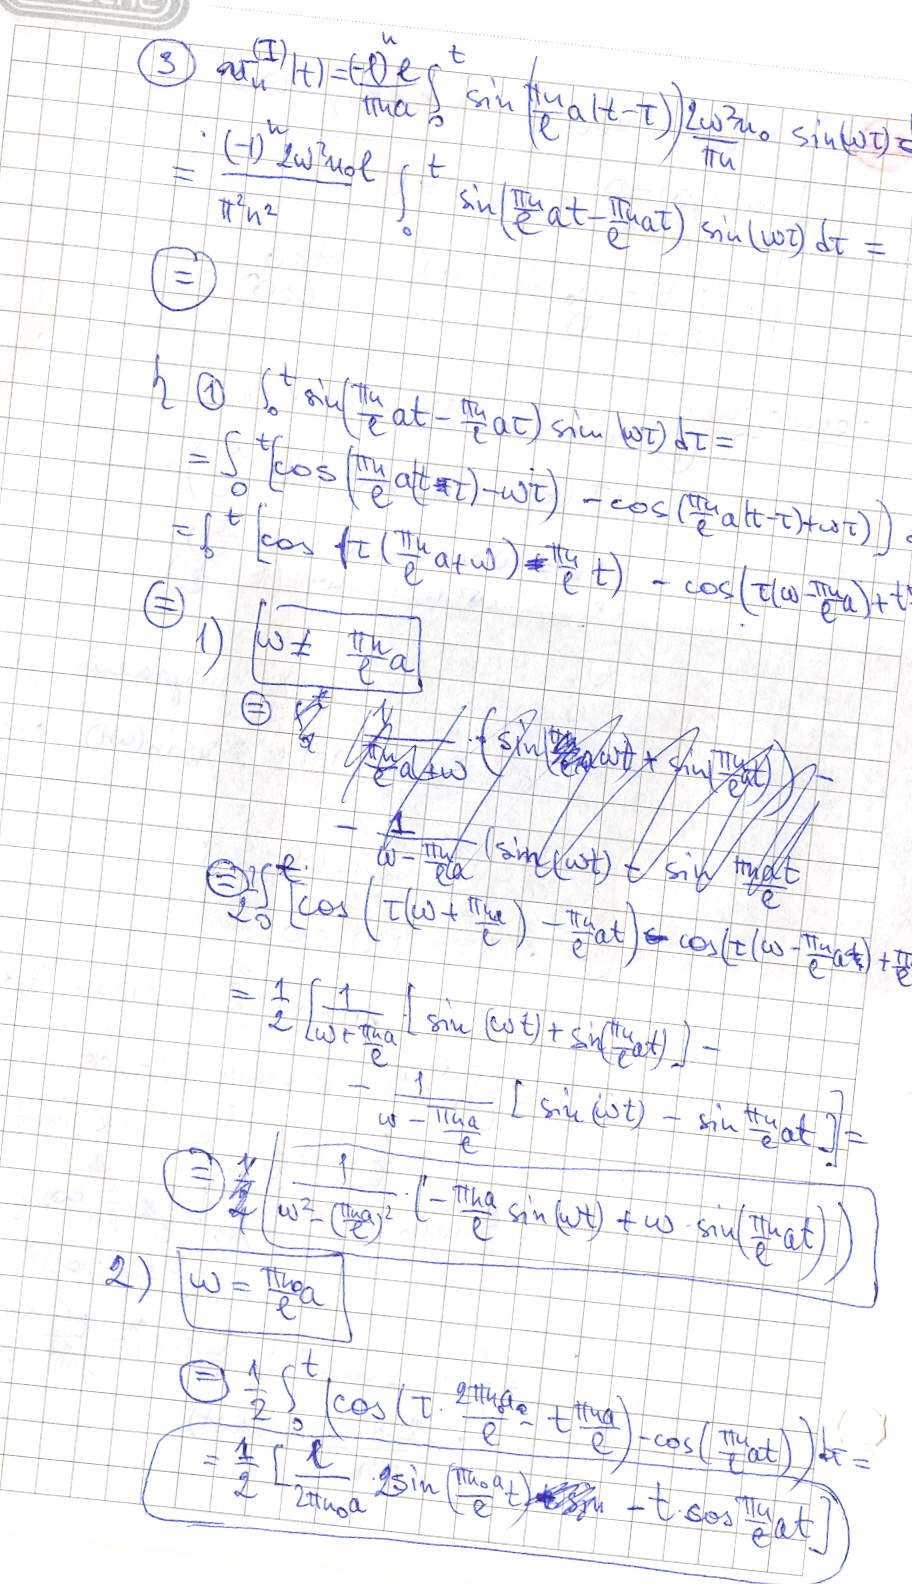 ③ u_n^{(I)}(t) = \frac{(-1)^n l}{πna} ∫_0^t sin(\frac{πn}{l}a(t-τ)) \frac{2ω²u_0}{πn} sin(ωτ)
= \frac{(-1)^n 2ω²u_0 l}{π²n²} ∫_0^t sin(\frac{πn}{l}at - \frac{πn}{l}aτ) sin(ωτ) dτ =
(=)
① ∫_0^t sin(\frac{πn}{l}at - \frac{πn}{l}aτ) sin(ωτ) dτ =
= ∫_0^t [cos(\frac{πn}{l}a(t-τ) - ωτ) - cos(\frac{πn}{l}a(t-τ) + ωτ)]
= ∫_0^t [cos(τ(\frac{πn}{l}a + ω) - \frac{πn}{l}t) - cos(τ(ω - \frac{πn}{l}a) + t
(=)
1) ω ≠ \frac{πn}{l}a
(=)
- \frac{1}{ω - \frac{πn}{l}a} (sin(ωt) - sin \frac{πnat}{l}
(=) \frac{1}{2} ∫_0^t [cos(τ(ω + \frac{πna}{l}) - \frac{πn}{l}at) - cos(τ(ω - \frac{πn}{l}at) + \frac{π}{l}
= \frac{1}{2} [\frac{1}{ω + \frac{πna}{l}} [sin(ωt) + sin(\frac{πn}{l}at)] -
- \frac{1}{ω - \frac{πna}{l}} [sin(ωt) - sin \frac{πn}{l}at]] =
(=) (\frac{1}{ω² - (\frac{πna}{l})²} · (-\frac{πna}{l} sin(ωt) + ω · sin(\frac{πn}{l}at)))
2) ω = \frac{πn_0}{l}a
(=) \frac{1}{2} ∫_0^t (cos(τ · \frac{2πn_0a}{l} - t\frac{πna}{l}) - cos(\frac{πn}{l}at)) dτ =
= \frac{1}{2} [\frac{l}{2πn_0a} · 2sin(\frac{πn_0a}{l}t) - t · cos \frac{πn}{l}at]